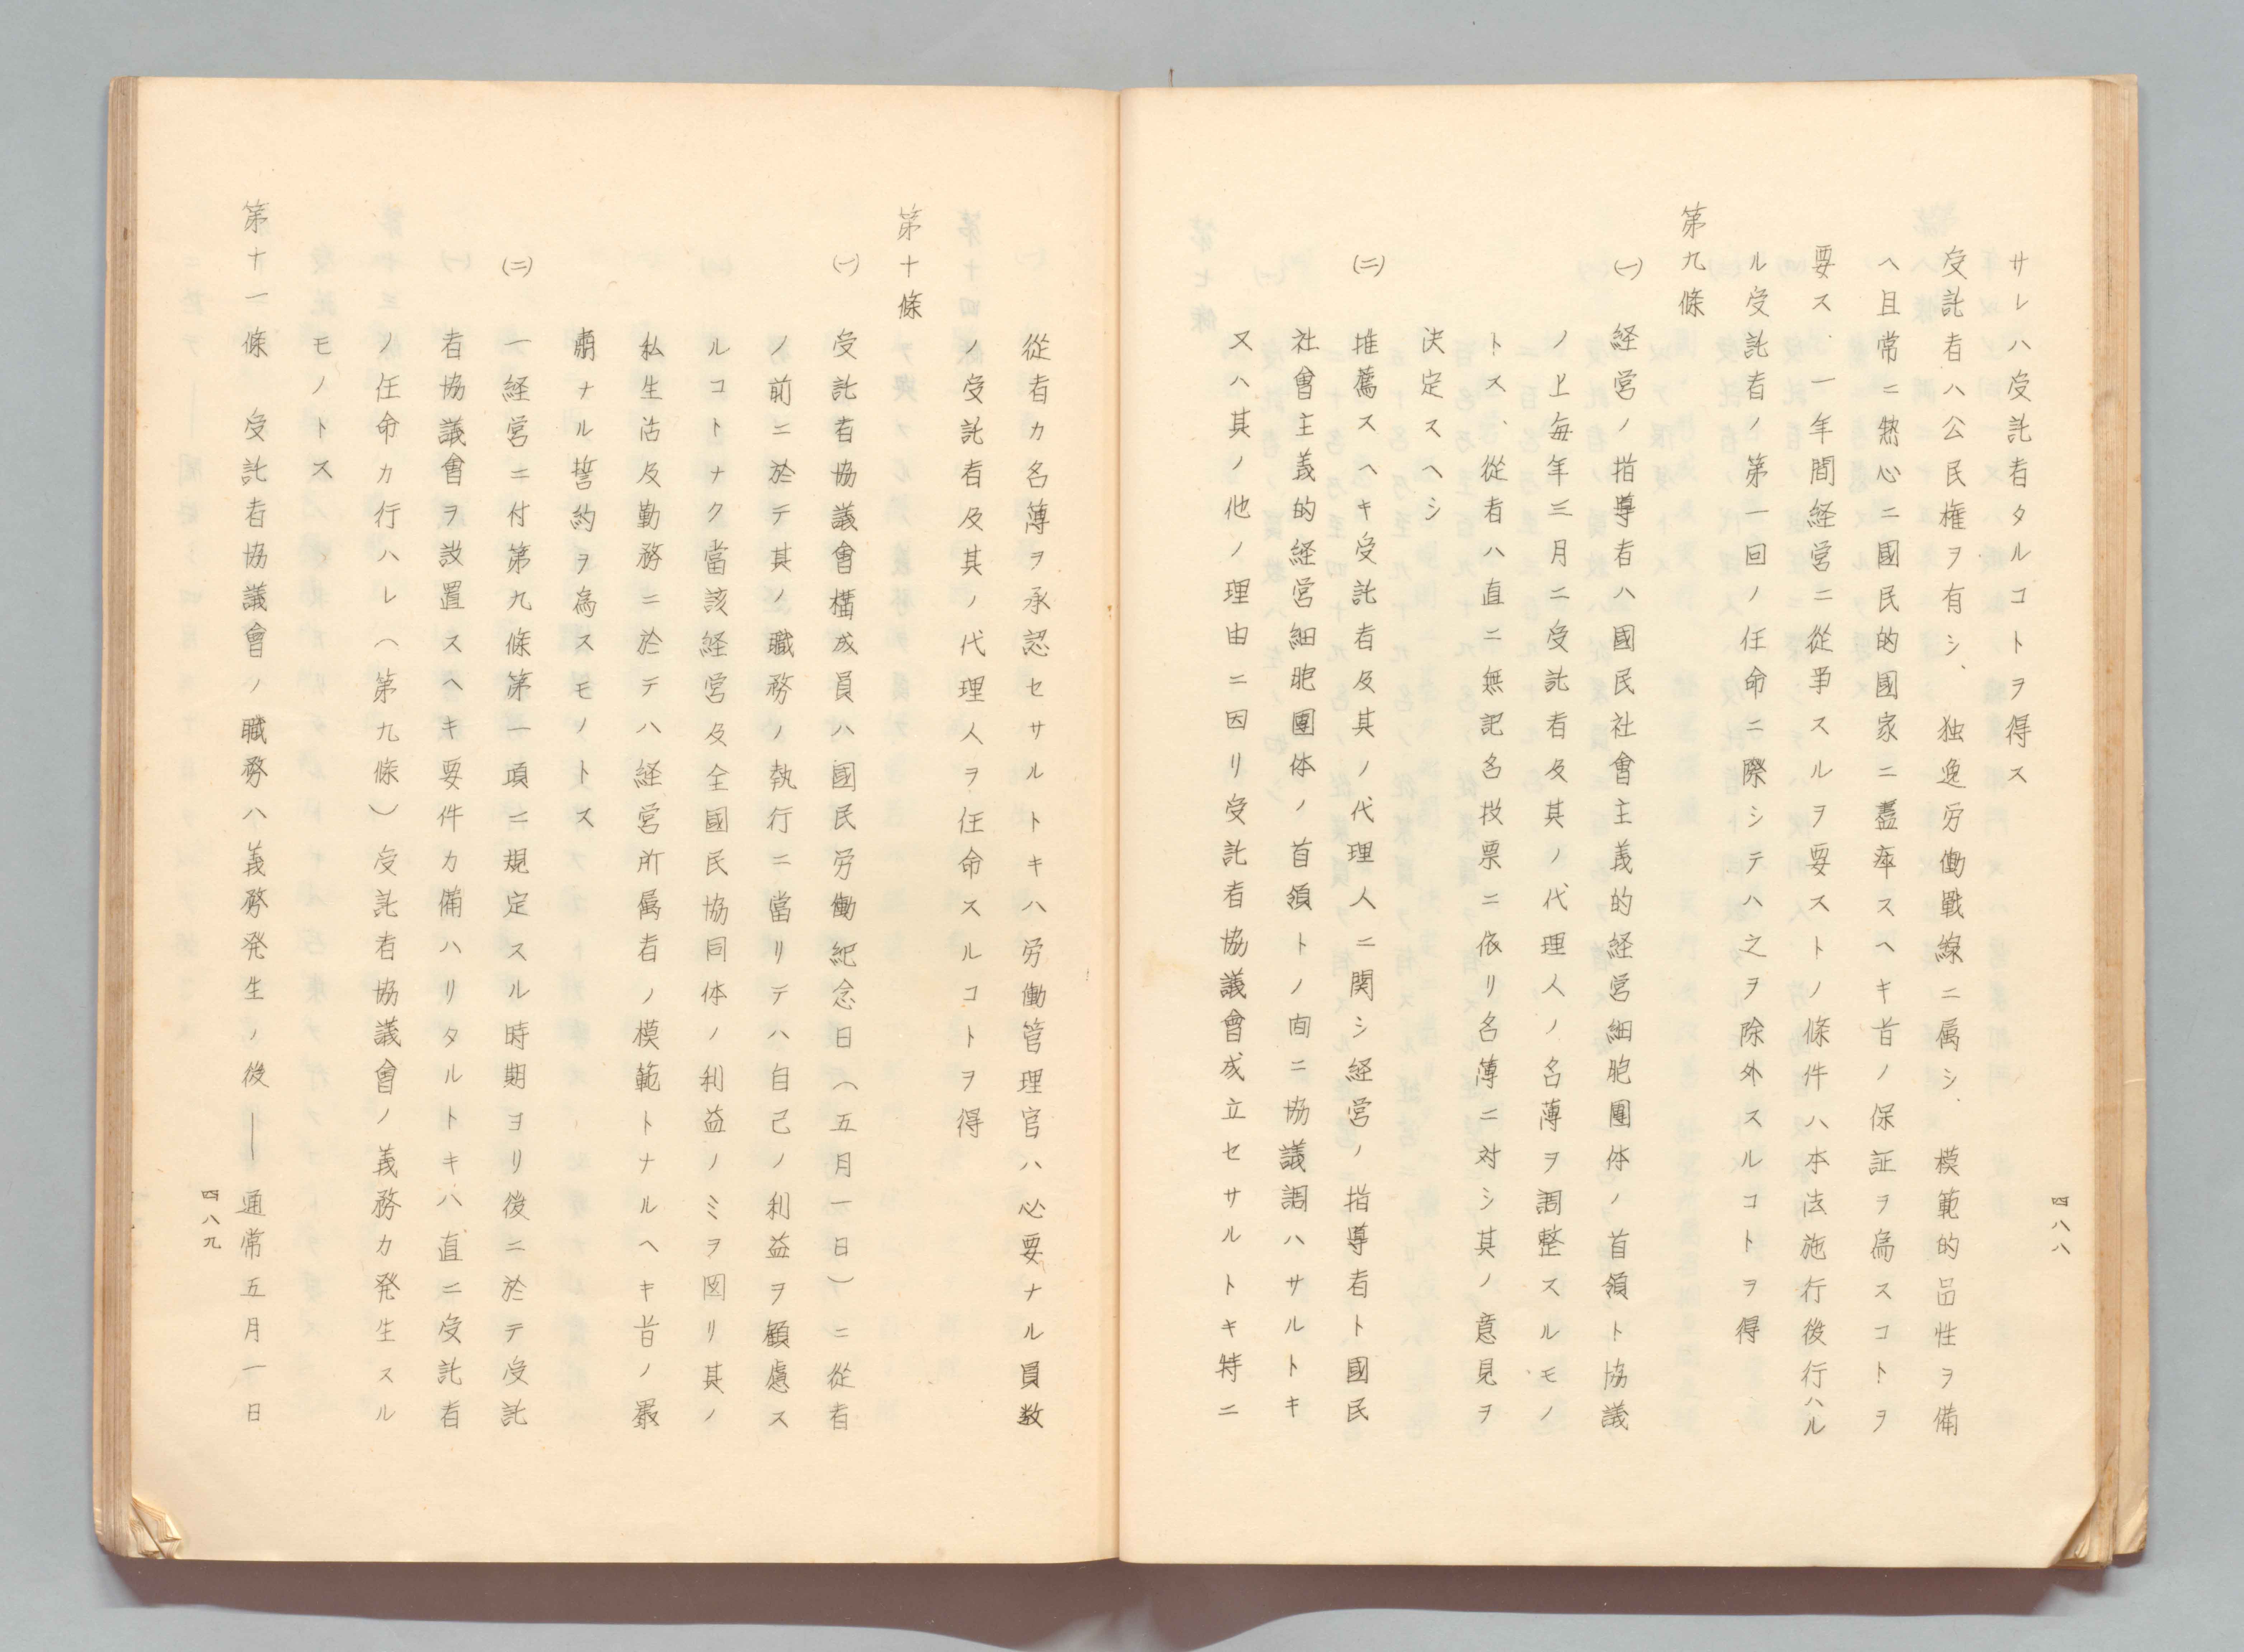 サレハ受託者タルコトヲ得ス
受託者ハ公民権ヲ有シ、独逸労働戰線ニ属シ、模範的品性ヲ備
ヘ且常ニ熱心ニ國民的國家ニ盡瘁スヘキ旨ノ保証ヲ為スコトヲ
要ス、一年間経営ニ從事スルヲ要ストノ條件ハ本法施行後行ハル
ル受託者ノ第一回ノ任命ニ際シテハ之ヲ除外スルコトヲ得
第九條
㈠ 経営ノ指導者ハ國民社會主義的経営細胞團体ノ首領ト協議
ノ上毎年三月ニ受託者及其ノ代理人ノ名薄ヲ調整スルモノ
トス、從者ハ直ニ無記名投票ニ依リ名薄ニ対シ其ノ意見ヲ
決定スヘシ
㈡ 推薦スヘキ受託者及其ノ代理人ニ関シ経営ノ指導者ト國民
社會主義的経営細胞團体ノ首領トノ間ニ協議調ハサルトキ
又ハ其ノ他ノ理由ニ因リ受託者協議會成立セサルトキ特ニ
四八八
從者カ名薄ヲ承認セサルトキハ労働管理官ハ必要ナル員数
ノ受託者及其ノ代理人ヲ任命スルコトヲ得
第十條
㈠ 受託者協議會構成員ハ國民労働紀念日（五月一日）ニ從者
ノ前ニ於テ其ノ職務ノ執行ニ當リテハ自己ノ利益ヲ顧慮ス
ルコトナク當該経営及全國民協同体ノ利益ノミヲ図リ其ノ
私生活及勤務ニ於テハ経営所属者ノ模範トナルヘキ旨ノ嚴
肅ナル誓約ヲ為スモノトス
㈡ 一経営ニ付第九條第一項ニ規定スル時期ヨリ後ニ於テ受託
者協議會ヲ設置スヘキ要件カ備ハリタルトキハ直ニ受託者
ノ任命カ行ハレ（第九條）受託者協議會ノ義務カ発生スル
モノトス
第十一條 受託者協議會ノ職務ハ義務発生ノ後―通常五月一日
四八九